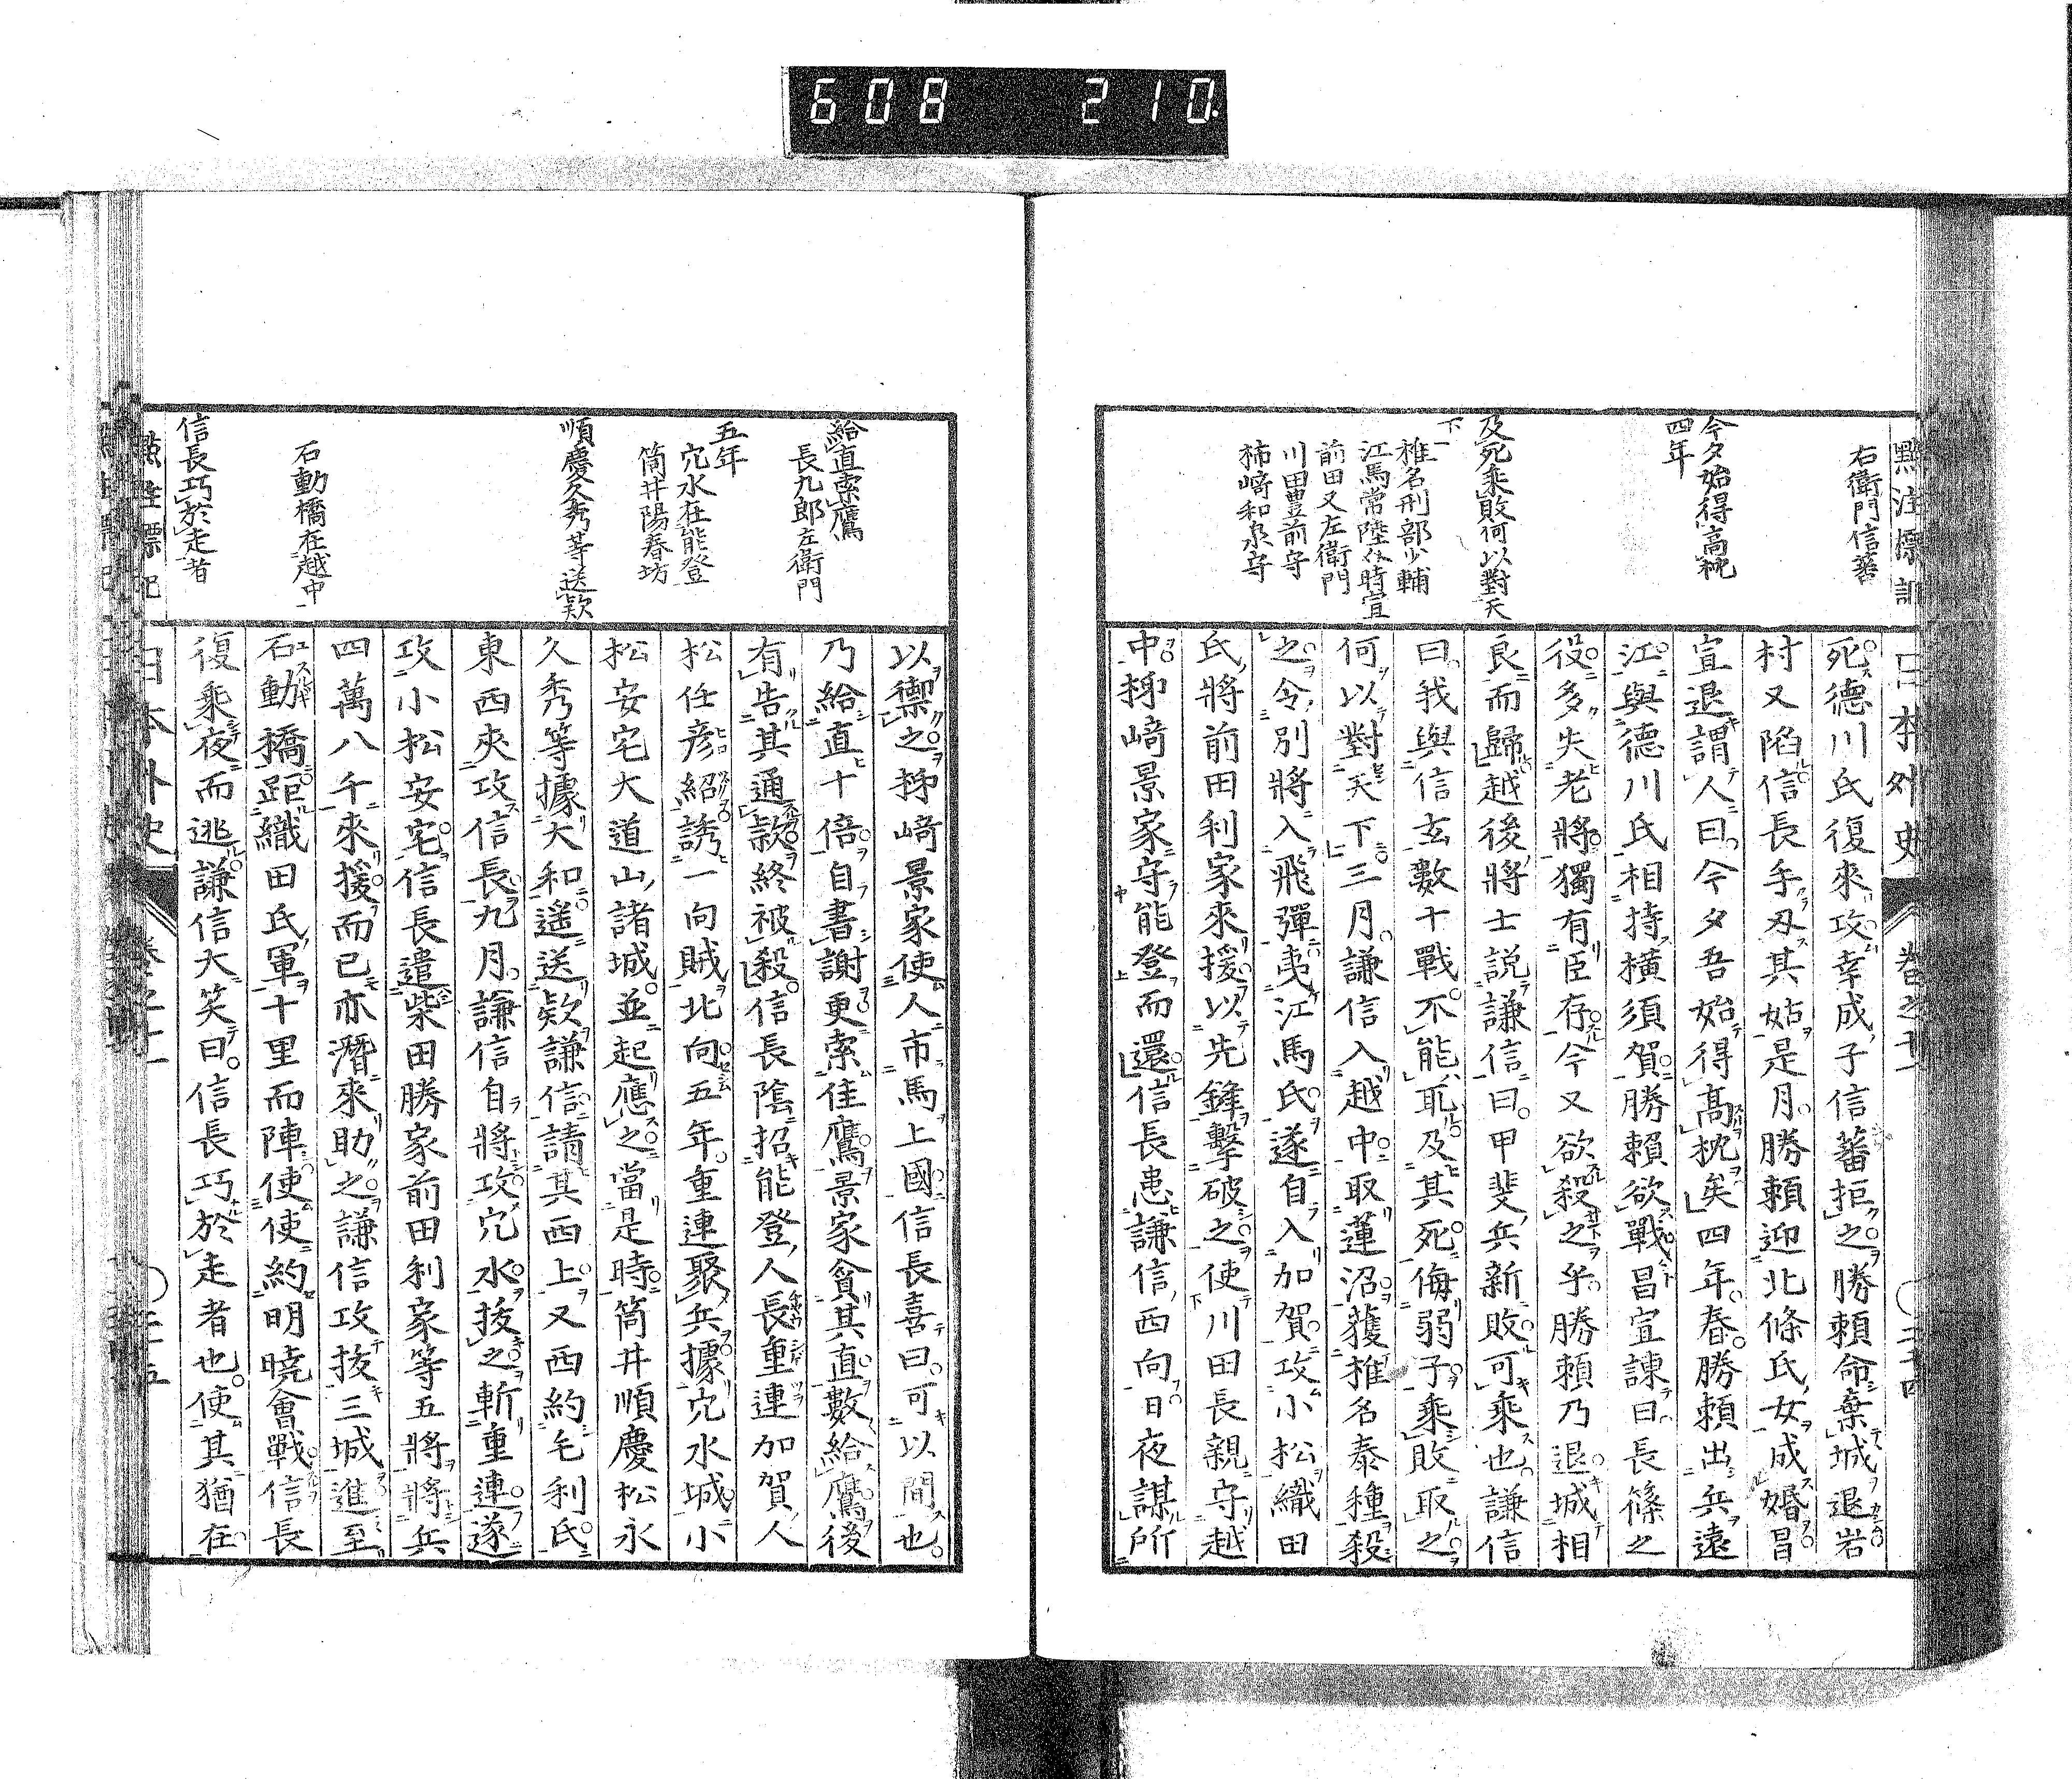 608 210
點注標記 日本外史 卷之十一 ○二十四
右衛門信蕃
今夕始得高枕
四年
及死乘敗何以對天
下
椎名刑部少輔
江馬常陸介時宣
前田又左衛門
川田豊前守
柿﨑和泉守
死德川氏復來攻幸成子信蕃拒之勝賴命棄城退岩
村又陷信長手刃其姑是月勝賴迎北條氏女成婚昌
宣退謂人曰今夕吾始得高枕矣四年春勝賴出兵遠
江與德川氏相持橫須賀勝賴欲戰昌宣諫曰長篠之
役多失老將獨有臣存今又欲殺之乎勝賴乃退城相
良而歸越後將士説謙信曰甲斐兵新敗可乘也謙信
曰我與信玄數十戰不能取及其死侮弱子乘敗取之
何以對天下三月謙信入越中取蓮沼獲椎名泰種殺
之令別將入飛彈夷江馬氏遂自入加賀攻小松織田
氏將前田利家來援以先鋒擊破之使川田長親守越
中柹﨑景家守能登而還信長患謙信西向日夜謀所
給直索鷹
長九郎左衛門
五年
穴水在能登
筒井陽春坊
順慶久秀等送欵
石動橋在越中
信長巧於走者
以禦之柹﨑景家使人市馬上國信長喜曰可以間也
乃給直十倍自書謝更索佳鷹景家貧其直數給鷹後
有告其通欵終被殺信長陰招能登人長重連加賀人
松任彦紹誘一向賊北向五年重連聚兵據穴水城小
松安宅大道山諸城並起應之當是時筒井順慶松永
久秀等據大和遙送欵謙信請其西上又西約毛利氏
東西夾攻信長九月謙信自將攻穴水拔之斬重連遂
攻小松安宅信長遣柴田勝家前田利家等五將將兵
四萬八千來援而已亦潛來助之謙信攻拔三城進至
石動橋距織田氏軍十里而陣使使約明曉會戰信長
復乘夜而逃謙信大笑曰信長巧於走者也使其猶在
點註標記 日本外史 卷之十一 ○二十五